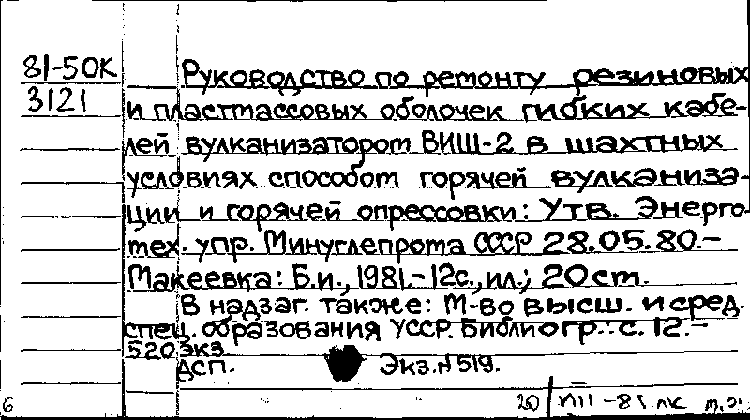 81-50К
3121
Руководство по ремонту резиновых
и пластмассовых оболочек гибких кабе-
лей вулканизатором ВИШ-2 в шахтных
условиях способом горячей вулканиза-
ции и горячей опрессовки: Утв. Энерго-
тех. упр. Минуглепрома СССР 28.05.80.-
Макеевка: Б.и., 1981.-12с., ил.; 20 см.
В надзаг. также: М-во высш. и сред.
спец. образования УССР. Библиогр.: с. 12.-
520 экз.
ДСП. Экз. № 519.
6 20